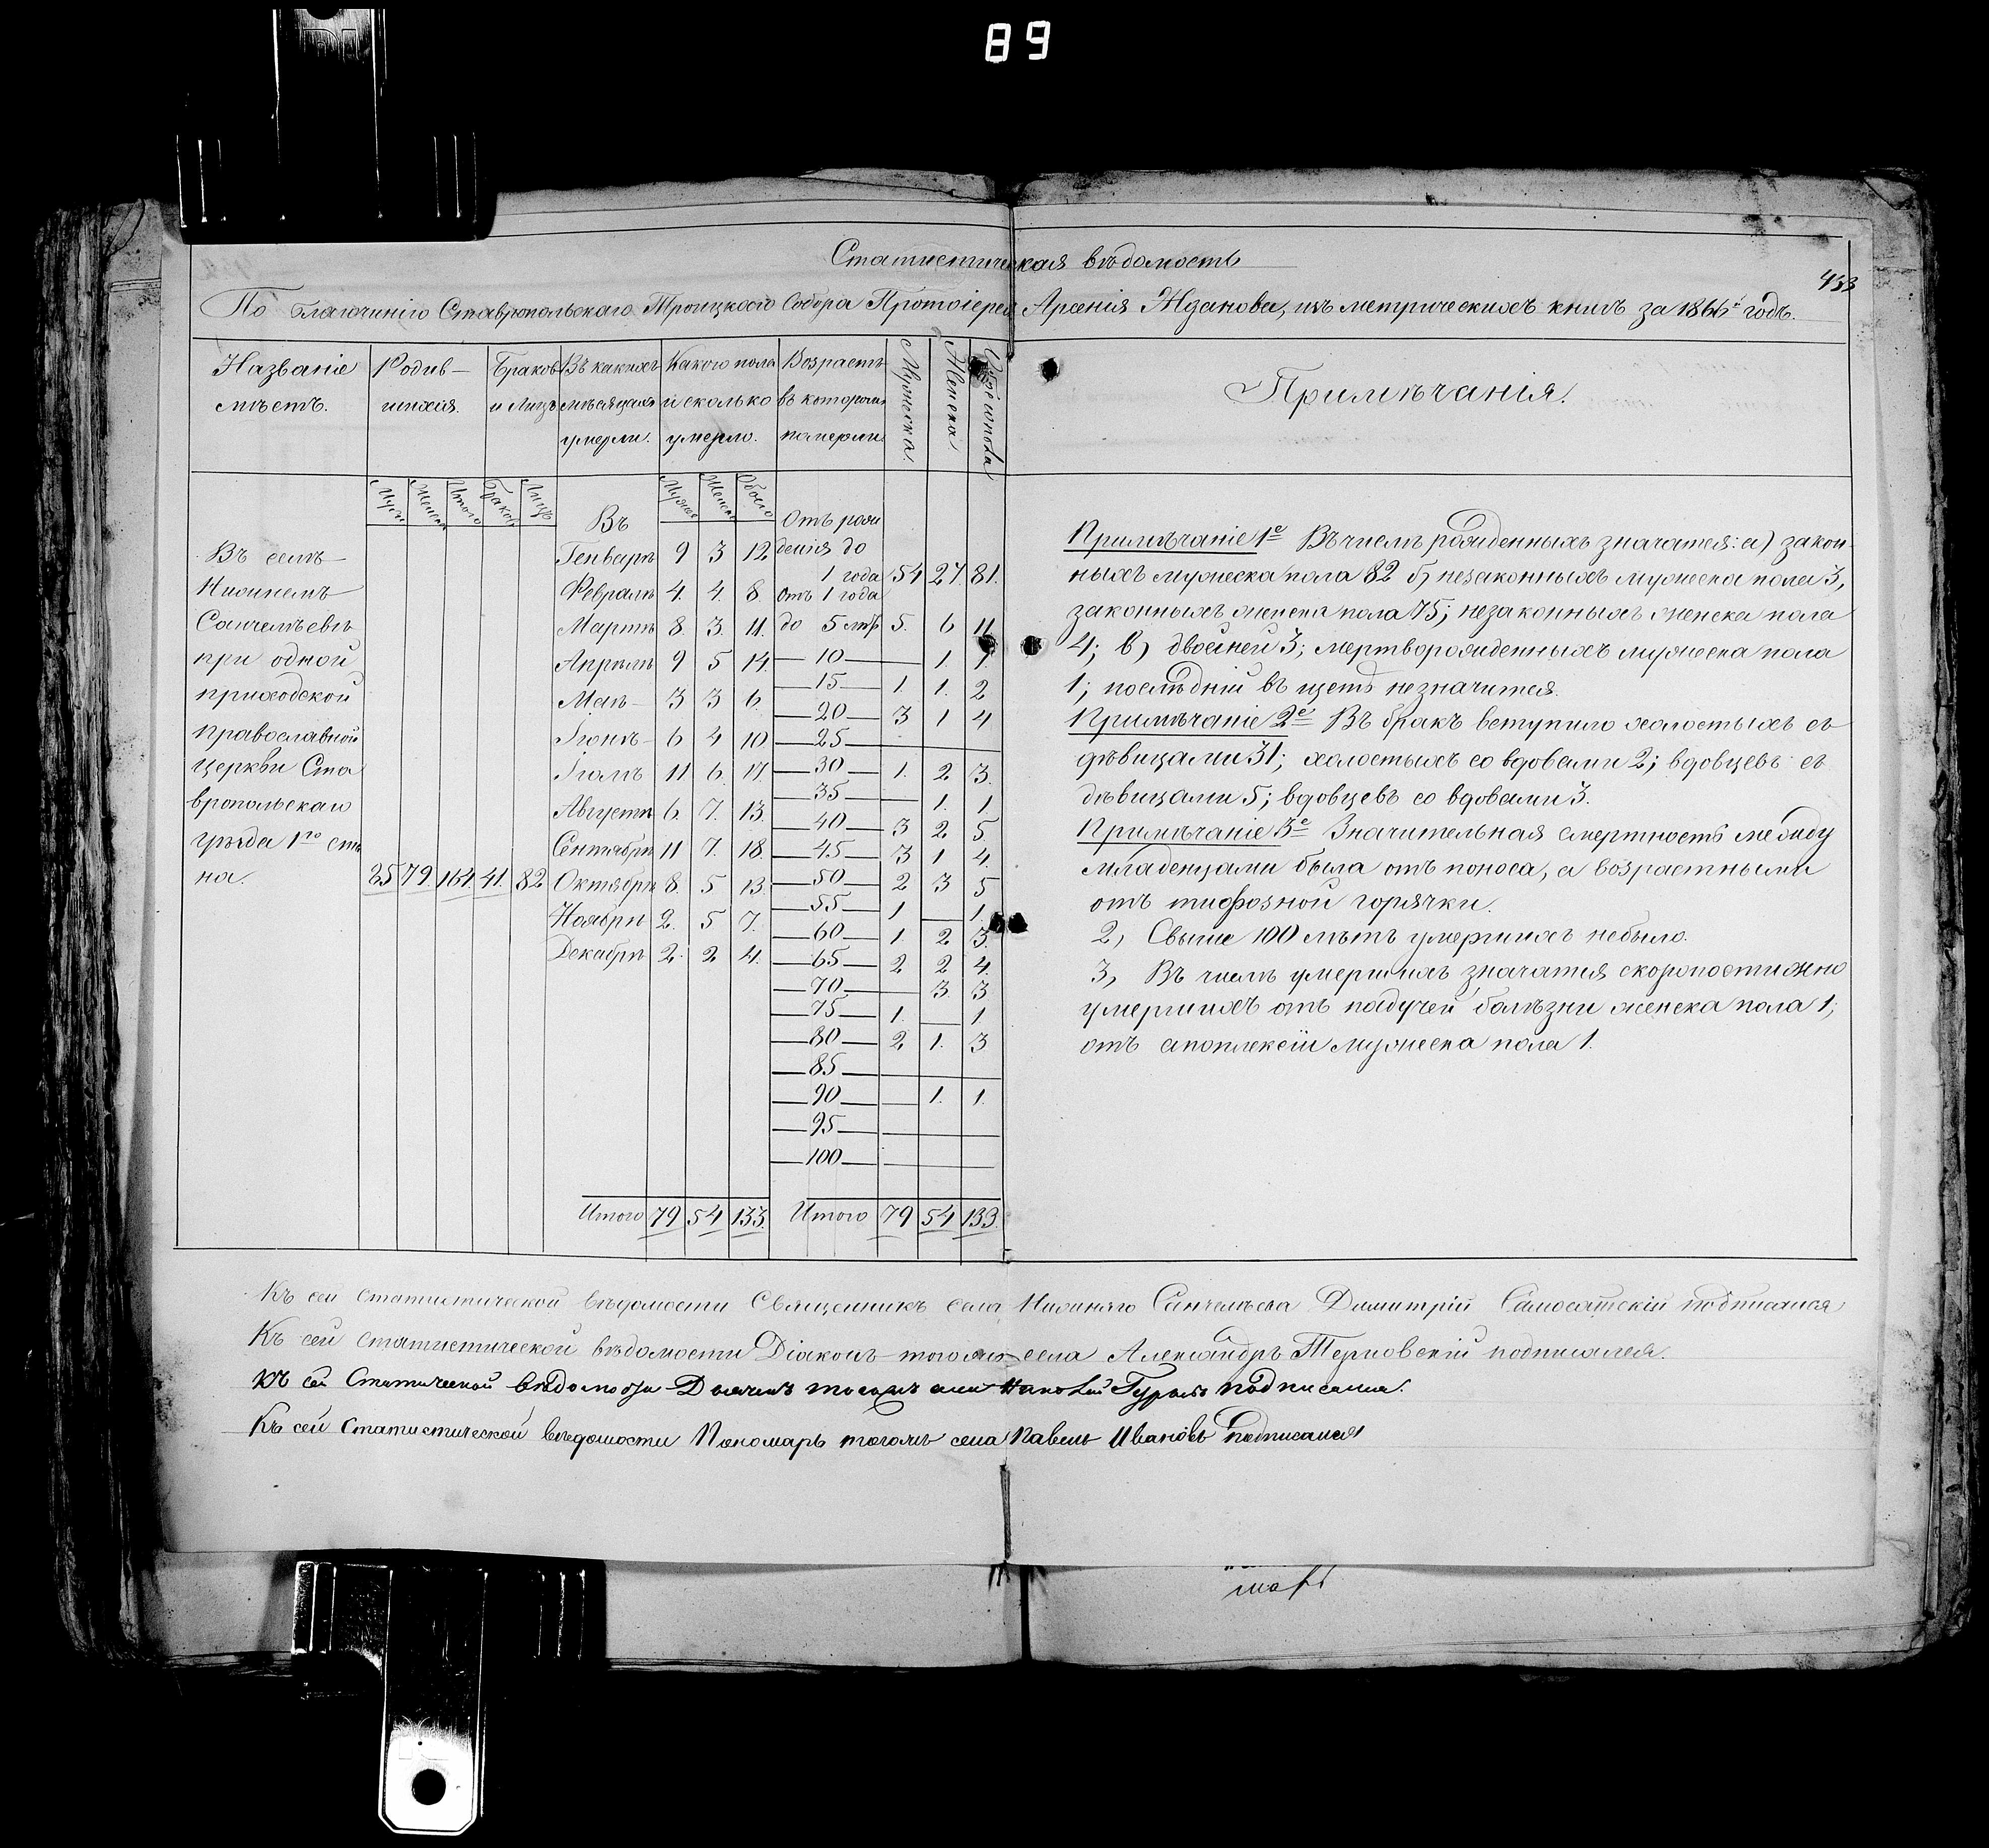 89
Статистическая вѣдомость
433
По благочинію Ставропольскаго Троицкаго Собора Протоіерея Арсенія Жданова, изъ метрическихъ книгъ за 1866й годъ.
Названіе мѣстъ. Родив-шихся. Браковъ и Лицъ Въ какихъ мѣсяцахъ умерли. Какого пола и сколько умерло. Возрастъ въ которомъ померли Мужеска. Женска. Обоего пола
Примѣчанія.
Муж. Женск. Итого Браковъ Лицъ Мужес. Женск. Обоего
Въ селѣ
Нижнемъ
Санчелѣевѣ
при одной
приходской
православной
церкви Ста
вропольскаго
уѣзда 1го ста
на.
85 79 164 41. 82
Въ
Генварѣ 9 3 12
Февралѣ 4. 4. 8.
Мартѣ 8. 3. 11.
Апрѣлѣ 9 5 14.
Маѣ 3 3 6.
Іюнѣ 6 4 10
Іюлѣ 11 6. 17
Августѣ 6. 7. 13.
Сентябрѣ 11 7. 18.
Октябрѣ 8. 5 13.
Ноябрѣ 2. 5 7.
Декабрѣ 2. 2 4.
Итого 79 54 133.
Отъ рож
денія до
1 года 54 27 81.
отъ 1 года
до 5 лѣтъ 5. 6 11
10 — 1. 1
15 1. 1. 2
20 3 1 4
25 —
30 1. 2 3.
35 — 1. 1
40 3 2 5
45 3 1 4.
50 2 3 5
55 1 — 1.
60 1. 2 3.
65 2 2 4.
70 — 3. 3
75 1. — 1.
80 2 1. 3
85 —
90 — 1. 1.
95 —
100 —
Итого 79 54 133.
Примѣчаніе 1е Въ числѣ рожденныхъ значатся: а) закон-
ныхъ мужеска пола 82 б) незаконныхъ мужеска пола 3,
законныхъ женска пола 75; незаконныхъ женска пола
4; в) двойней 3; мертворожденныхъ мужеска пола
1; послѣдній въ щетъ незначится.
Примѣчаніе 2е Въ бракъ вступило холостыхъ съ
дѣвицами 31; холостыхъ со вдовами 2; вдовцевъ съ
дѣвицами 5; вдовцевъ со вдовами 3.
Примѣчаніе 3е Значительная смертность между
младенцами была отъ поноса, а возрастными
отъ тифозной горячки.
2, Свыше 100 лѣтъ умершихъ небыло.
3, Въ числѣ умершихъ значатся скоропостижно
умершихъ отъ падучей болѣзни женска пола 1;
отъ апоплексіи мужеска пола 1.
Къ сей статистической вѣдомости Священникъ села Нижняго Санчелѣева Димитрій Самосатскій подписался
Къ сей статистической вѣдомости Діаконъ тогоже села Александръ Терновскій подписался.
Къ сей Статической вѣдомости Дьячекъ тогожъ села Гурьевъ подписался.
Къ сей Статистической вѣдомости Пономарь тогожъ села Павелъ Ивановъ подписался